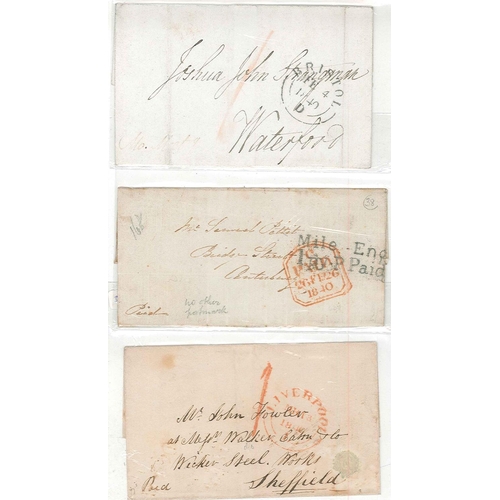 Joshua John Strangman
BRISTOL
Waterford
1/68
38
Mr Samuel
Mile End
Bridge Street
Paid
26 FE 26
1840
Canterbury
no other
postmark
Paid
1
LIVERPOOL
Mr John Fowler
at Messrs Walker Eaton & Co
Wicker Steel Works
Paid
Sheffield